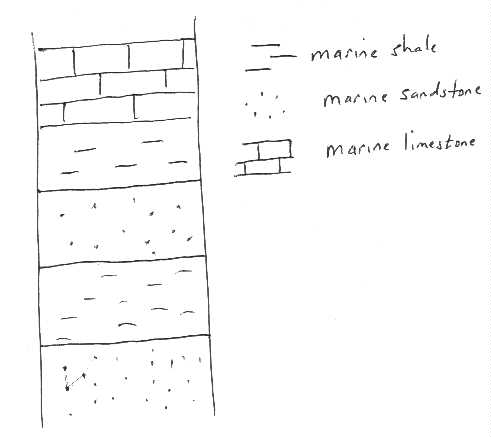 marine shale
marine sandstone
marine limestone